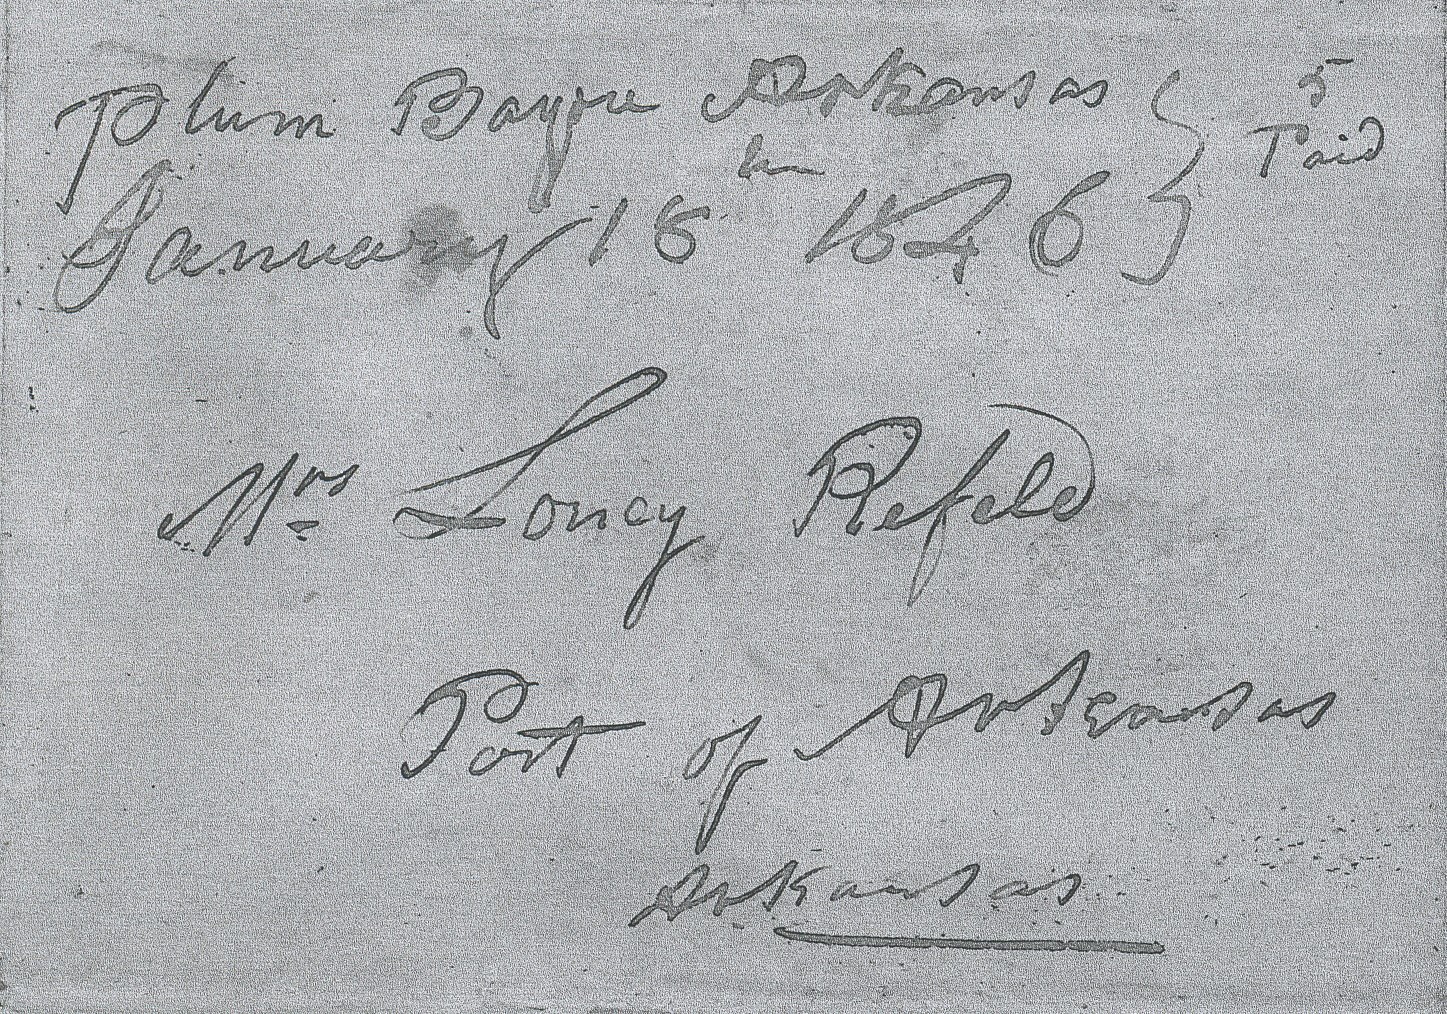 Plum Bayou Arkansas } 5
January 16th 1846 } Paid
Mrs Loncy Refeld
Post of Arkansas
Arkansas